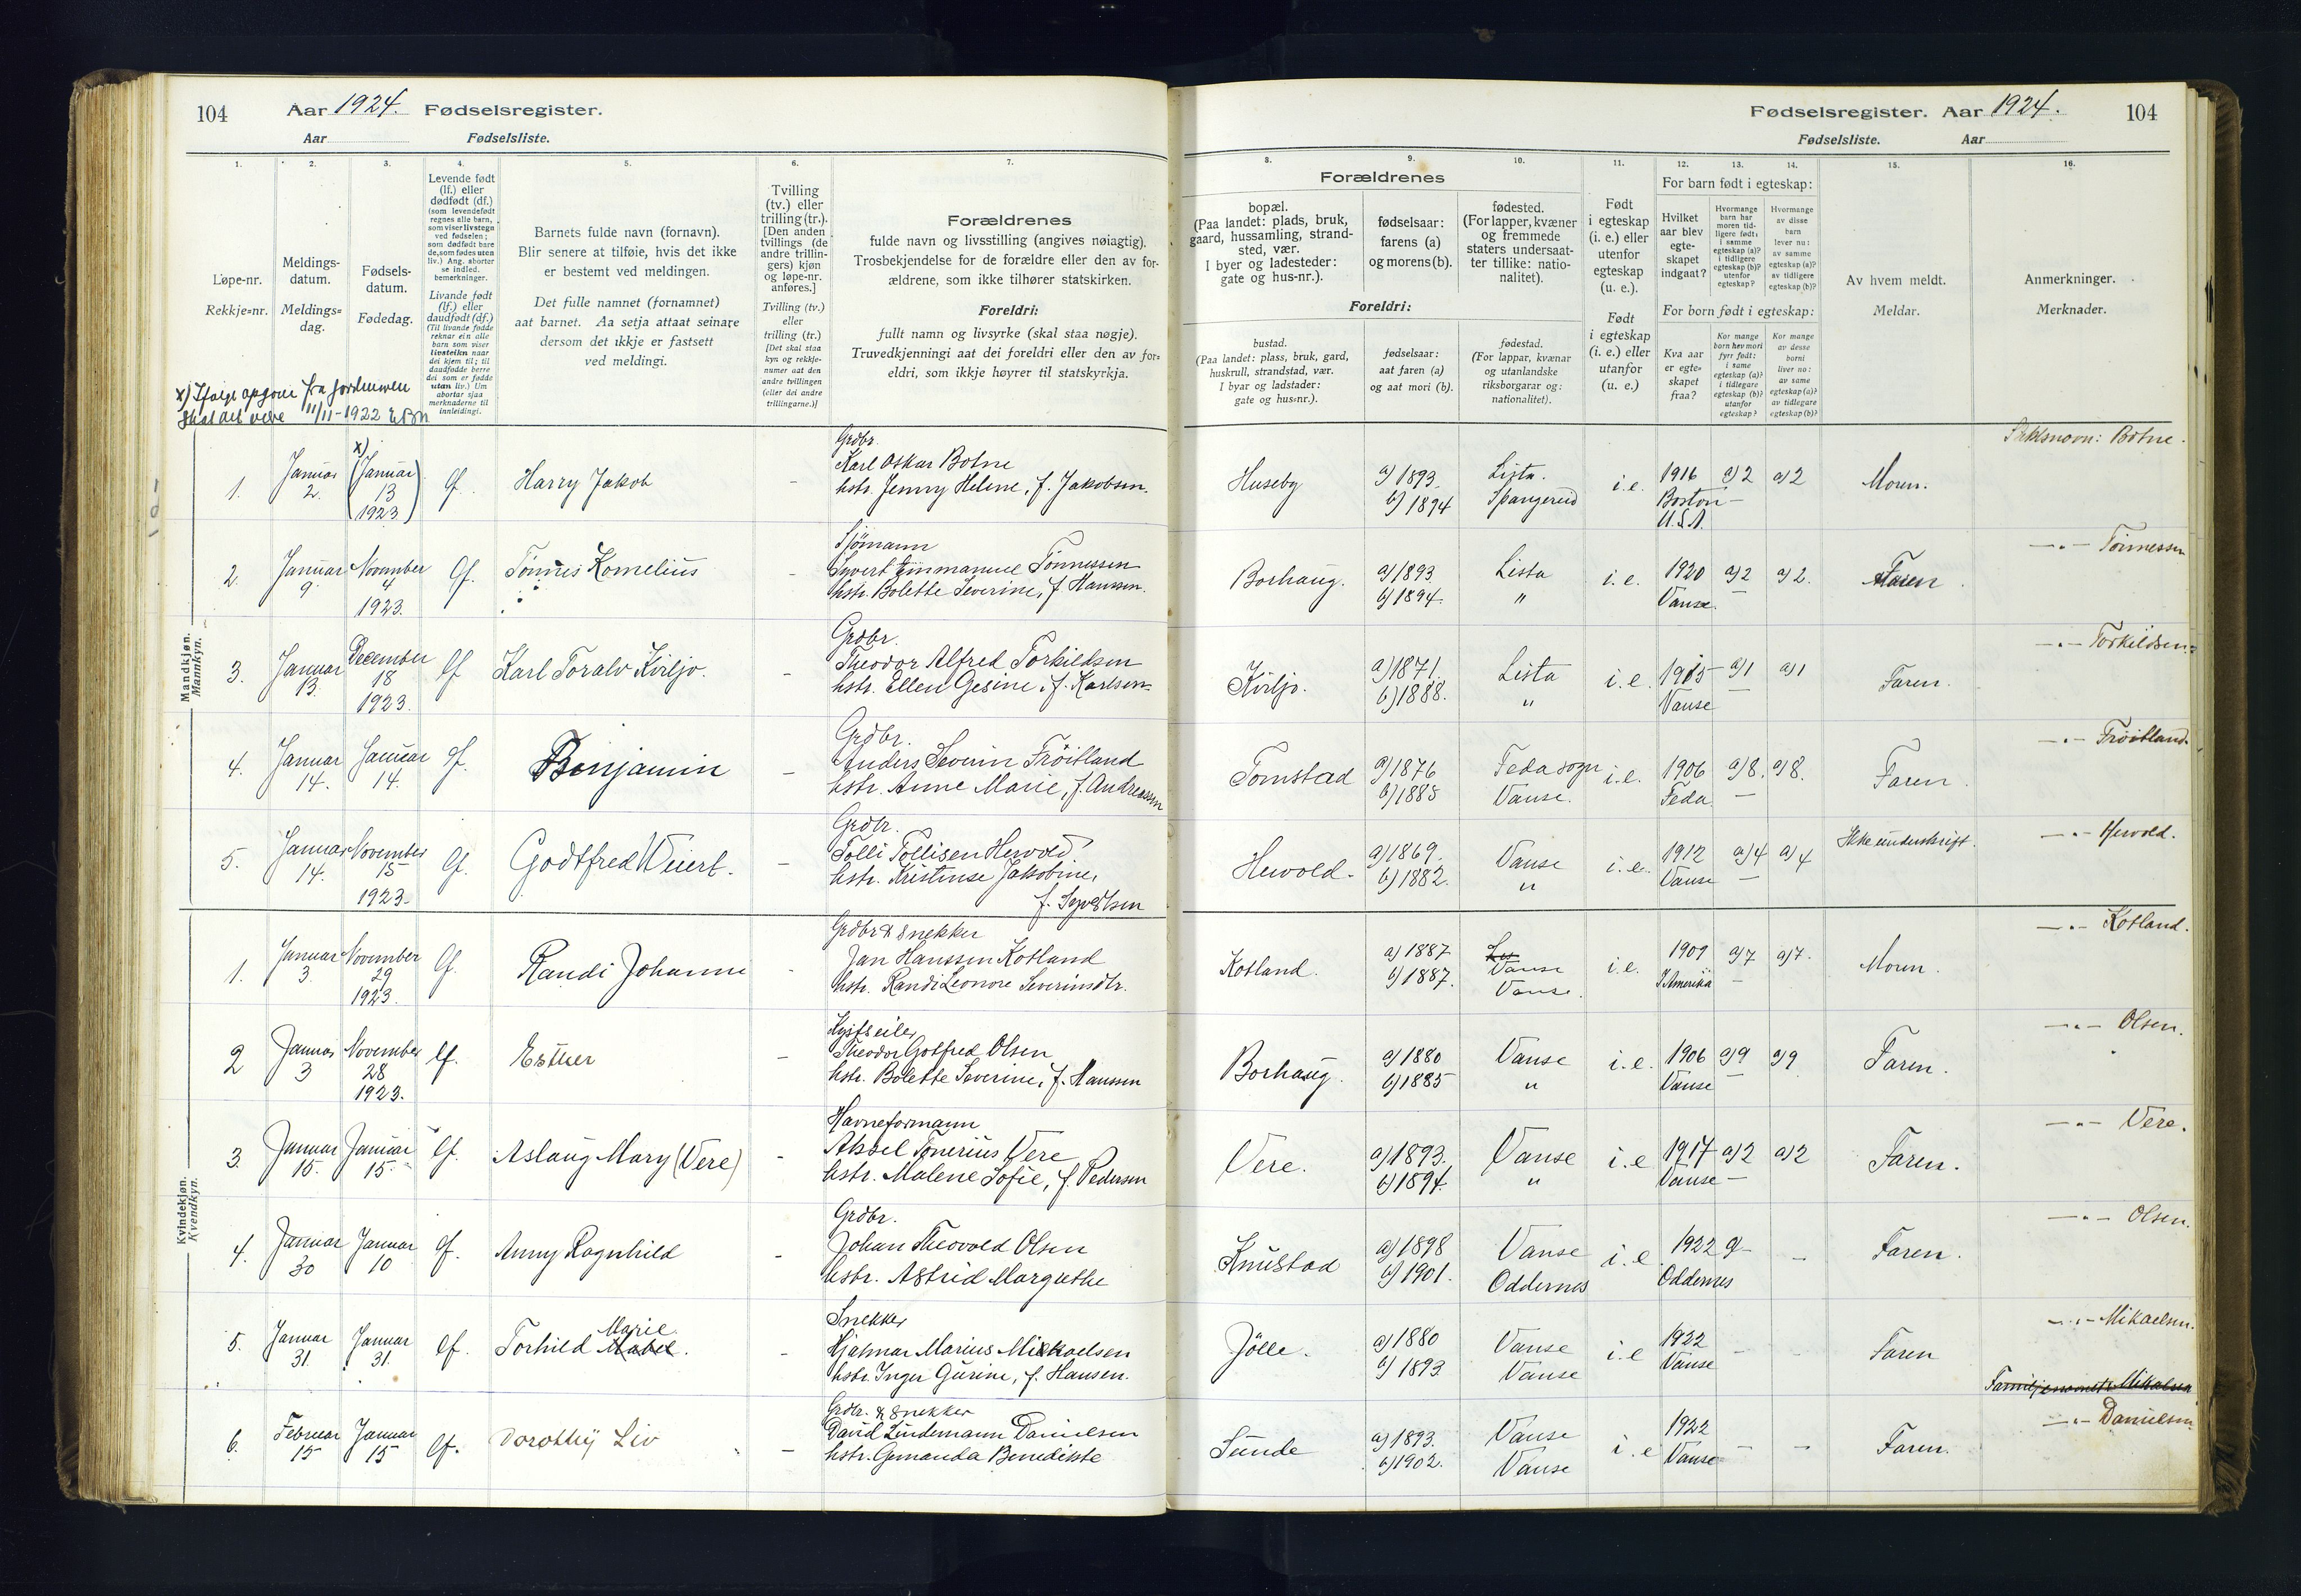 104 Aar 1924. Fødselsregister.
Aar Fødselsliste.
1. 2. 3. 4. 5. 6. 7.
Løpe-nr.
Rekkje=nr.
Meldings-
datum.
Meldings=
dag.
Fødsels-
datum.
Fødedag.
Levende født
(lf.) eller
dødfødt (df.)
(som levendefødt
regnes alle barn,
som viser livstegn
ved fødselen;
som dødfødt bare
de, som fødes uten
liv.) Ang. aborter
se indled.
bemerkninger.
Livande født
(lf.) eller
daudfødt (df.)
(Til livande fødde
reknar ein alle
barn som viser
livsteikn naar
dei kjem til; til
daudfødde berre
dei som er fødde
utan liv.) Um
abortar sjaa
merknaderne til
innleidingi.
Barnets fulde navn (fornavn).
Blir senere at tilføie, hvis det ikke
er bestemt ved meldingen.
Det fulle namnet (fornamnet)
aat barnet. Aa setja attaat seinare
dersom det ikkje er fastsett
ved meldingi.
Tvilling
(tv.) eller
trilling (tr.).
[Den anden
tvillings (de
andre trillin-
gers) kjøn
og løpe-nr.
anføres.]
Tvilling (tv.)
eller
trilling (tr.)
[Det skal staa
kyn og rekkje-
numer aat den
andre tvillingen
(eller dei andre
trillingarne.)]
Forældrenes
fulde navn og livsstilling (angives nøiagtig).
Trosbekjendelse for de forældre eller den av for-
ældrene, som ikke tilhører statskirken.
Foreldri:
fullt namn og livsyrke (skal staa nøgje).
Truvedkjenningi aat dei foreldri eller den av for=
eldri, som ikkje høyrer til statskyrkja.
x) Ifølge opgave fra jordmoren
skal det være 11/11-1922
Mandkjøn.
Mannkyn.
1. Januar 2. x) (Januar 13 1923) lf. Harry Jakob - Grdbr.
Karl Oskar Botne
hstr. Jenny Helene, f. Jakobsen.
2. Januar 9. November 4 1923. lf. Tønnes Kornelius - Sjømann
Syvert Emmanuel Tønnessen
hstr. Bolette Severine, f. Hanssen.
3. Januar 13. December 18 1923. lf Karl Toralv Kviljo. - Grdbr.
Theodor Alfred Torkildsen
hstr. Ellen Gesine, f. Karlsen
4. Januar 14. Januar 14. lf. Benjamin - Grdbr.
Anders Severin Frøitland
hstr. Anne Marie, f. Andreassen
5. Januar 14. November 15 1923. lf. Godtfred Weiert. - Grdbr.
Tolli Tollisen Hervold
hstr. Kristense Jakobine,
f. Syvertsen
Kvindekjøn.
Kvendkyn.
1. Januar 3. November 29 1923. lf. Randi Johanne - Grdbr & snekker
Jan Hanssen Kotland
hstr. Randi Leonore Severinsdtr.
2 Januar 3 November 28 1923. lf. Esther - 
Theodor Gotfred Olsen
hstr. Bolette Severine, f. Hanssen
3. Januar 15. Januar 15. lf. Aslaug Mary (Vere) - Havneformann
Aksel Tønerius Vere
hstr. Malene Sofie, f. Pedersen
4. Januar 30 Januar 10 lf. Anny Ragnhild - Grdbr.
Johan Theovald Olsen
hstr. Astrid Margrethe
5. Januar 31. Januar 31. lf. Torhild Mabel Marie. - Snekker
Hjalmar Marius Mikaelsen
hstr. Inger Gurine, f. Hansen.
6. Februar 15 Januar 15 lf. Dorothy Liv - Grdbr. & snekker
David Lindemann Danielsen
hstr. Gemanda Benedikte
Fødselsregister. Aar 1924. 104
Fødselsliste. Aar
8. 9. 10. 11. 12. 13. 14. 15. 16.
Forældrenes
bopæl.
(Paa landet: plads, bruk,
gaard, hussamling, strand-
sted, vær.
I byer og ladesteder:
gate og hus-nr.).
fødselsaar:
farens (a)
og morens (b).
fødested.
(For lapper, kvæner
og fremmede
staters undersaat-
ter tillike: natio-
nalitet).
Foreldri:
bustad.
(Paa landet: plass, bruk, gard,
huskrull, strandstad, vær.
I byar og ladstader:
gate og hus=nr.).
fødselsaar:
aat faren (a)
og aat mori (b).
fødestad.
(For lappar, kvænar
og utanlandske
riksborgarar og:
nationalitet).
Født
i egteskap
(i. e.) eller
utenfor
egteskap
(u. e.).
Født
i egteskap
(i. e.) eller
utanfor
(u. e.)
For barn født i egteskap:
Hvilket
aar blev
egte-
skapet
indgaat?
Hvormange
barn har
moren tid-
ligere født:
i samme
egteskap (a)?
i tidligere
egteskap (b)?
utenfor
egteskap?
Hvormange
av disse
barn
lever nu:
av samme
egteskap (a)?
av tidligere
egteskap (b)?
For born født i egteskap:
Kva aar
er egte=
skapet
fraa?
Kor mange
born hev mori
fyrr født:
i same
egteskap (a)?
i tidlegare
egteskap (b)?
utanfor
egteskap?
Kor mange
av desse
borni
liver no:
av same
egteskap (a)?
av tidlegare
egteskap (b)?
Av hvem meldt.
Meldar.
Anmerkninger.
Merknader.
Huseby a) 1893. b) 1894 Lista. Spangereid i.e. 1916 Boston U.S.A. a) 2 - a) 2 Moren. Slektsnavn: Botne.
Borhaug. a) 1893 b) 1894. Lista " i.e. 1920 Vanse. a) 2 - a) 2. Faren. —"— Tønnessen
Kviljo. a) 1871. b) 1888. Lista " i.e. 1915 Vanse a) 1 - a) 1 Faren. —"— Torkildsen.
Tomstad a) 1876 b) 1885 Feda sogn Vanse. i.e. 1906 Feda. a) 8. - a) 8. Faren. —"— Frøitland.
Hervold. a) 1869. b) 1882. Vanse " i.e. 1912 Vanse a) 4 - a) 4 Ikke underskrift. —"— Hervold.
Kotland. a) 1887 b) 1887. Vanse Vanse. i.e. 1909 I Amerika a) 7 - a) 7. Moren. —"— Kotland.
Borhaug. a) 1880 b) 1885 Vanse " i.e. 1906 Vanse a) 9 - a) 9 Faren. —"— Olsen.
Vere. a) 1893. b) 1894. Vanse " i.e 1917 Vanse a) 2 - a) 2 Faren. —"— Vere.
Knustad a) 1898 b) 1901. Vanse Oddernes i.e. 1922 Oddernes - - Faren. —"— Olsen.
Jölle. a) 1880 b) 1893 Vanse Vanse i.e 1922 Vanse - - Faren —"— Mikaelsen.
Familjenavnet Mikalsen
Sunde a) 1893. b) 1902. Vanse Vanse i.e 1922 Vanse - - Faren. —"— Danielsen